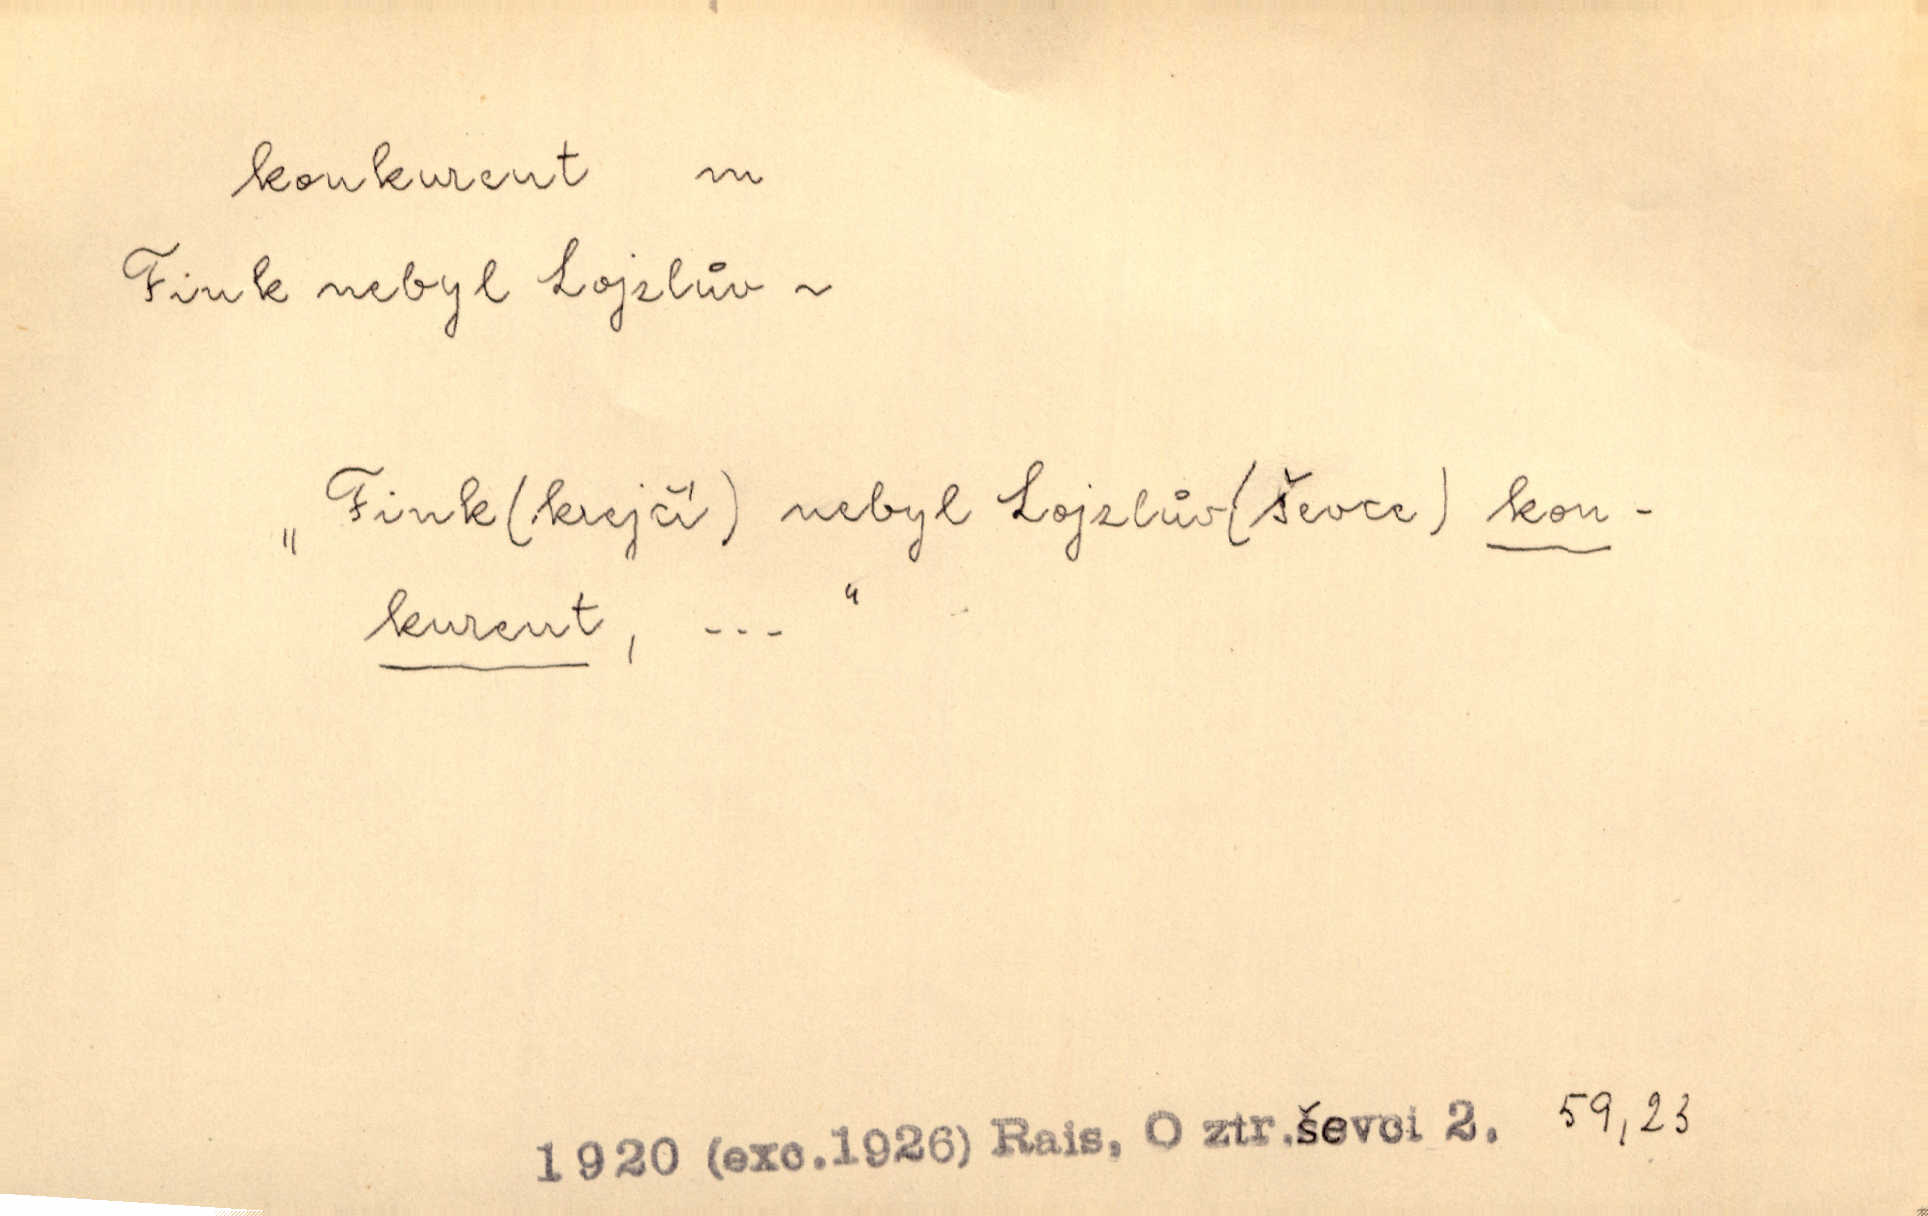 konkurent m
Fink nebyl Lojzlův ~
„Fink (krejčí) nebyl Lojzlův (ševce) kon-
kurent, ---“
1920 (exc.1926) Rais, O ztr.ševci 2. 59,23